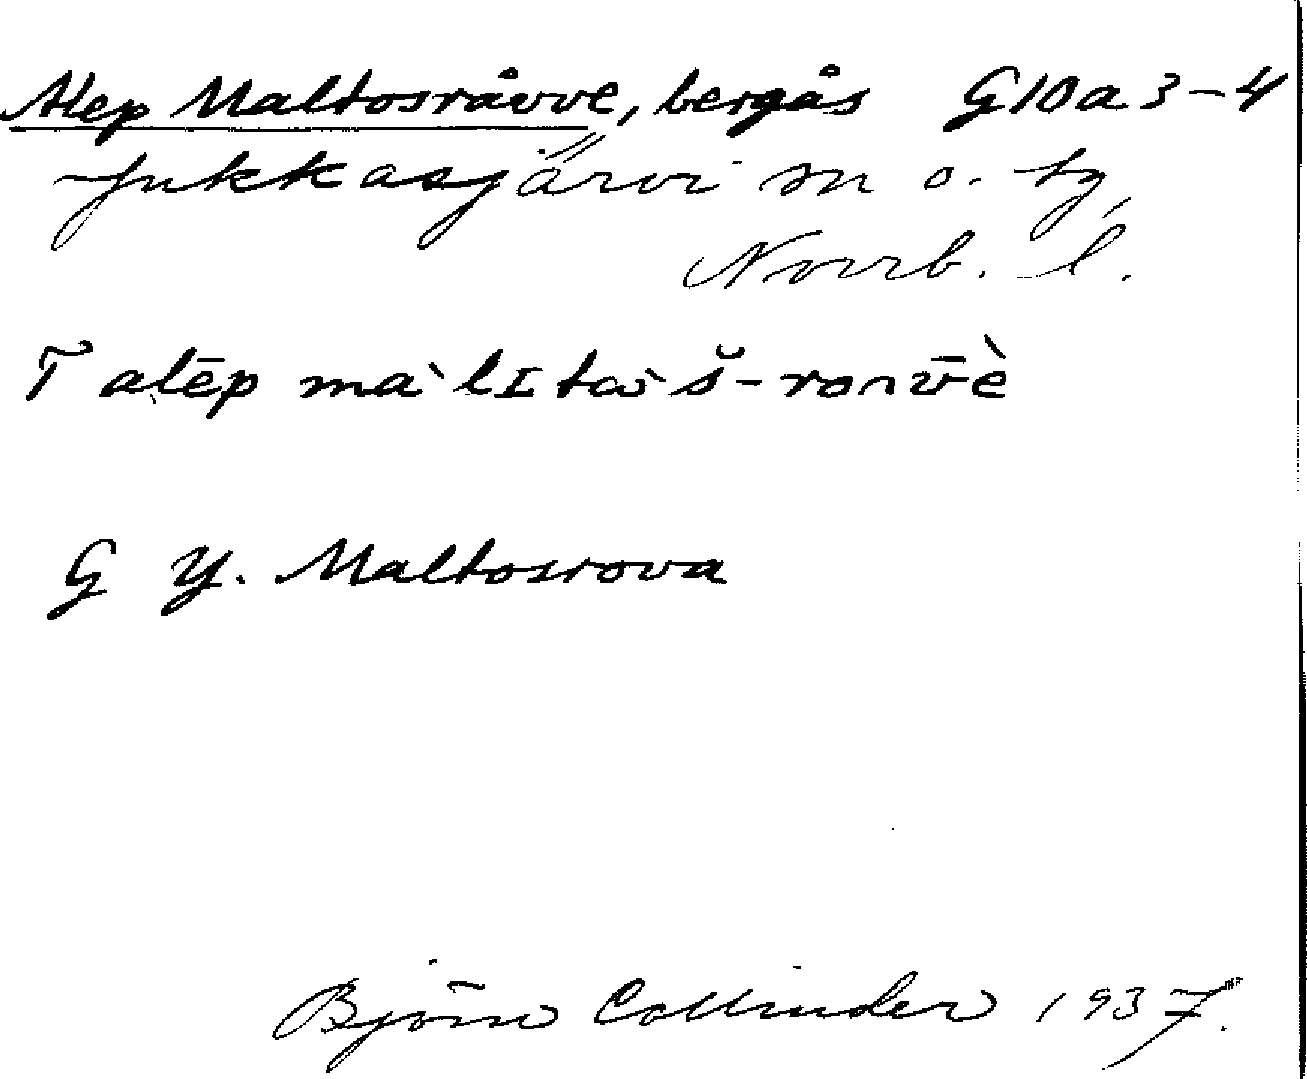 Alep Maltosråvve, bergås G10a3-4
Jukkasjärvi sn o. tg,
Norrb. l.
T alēp màlɪtàš-ronv̄è
G Y. Maltosrova
Björn Collinder 1937.